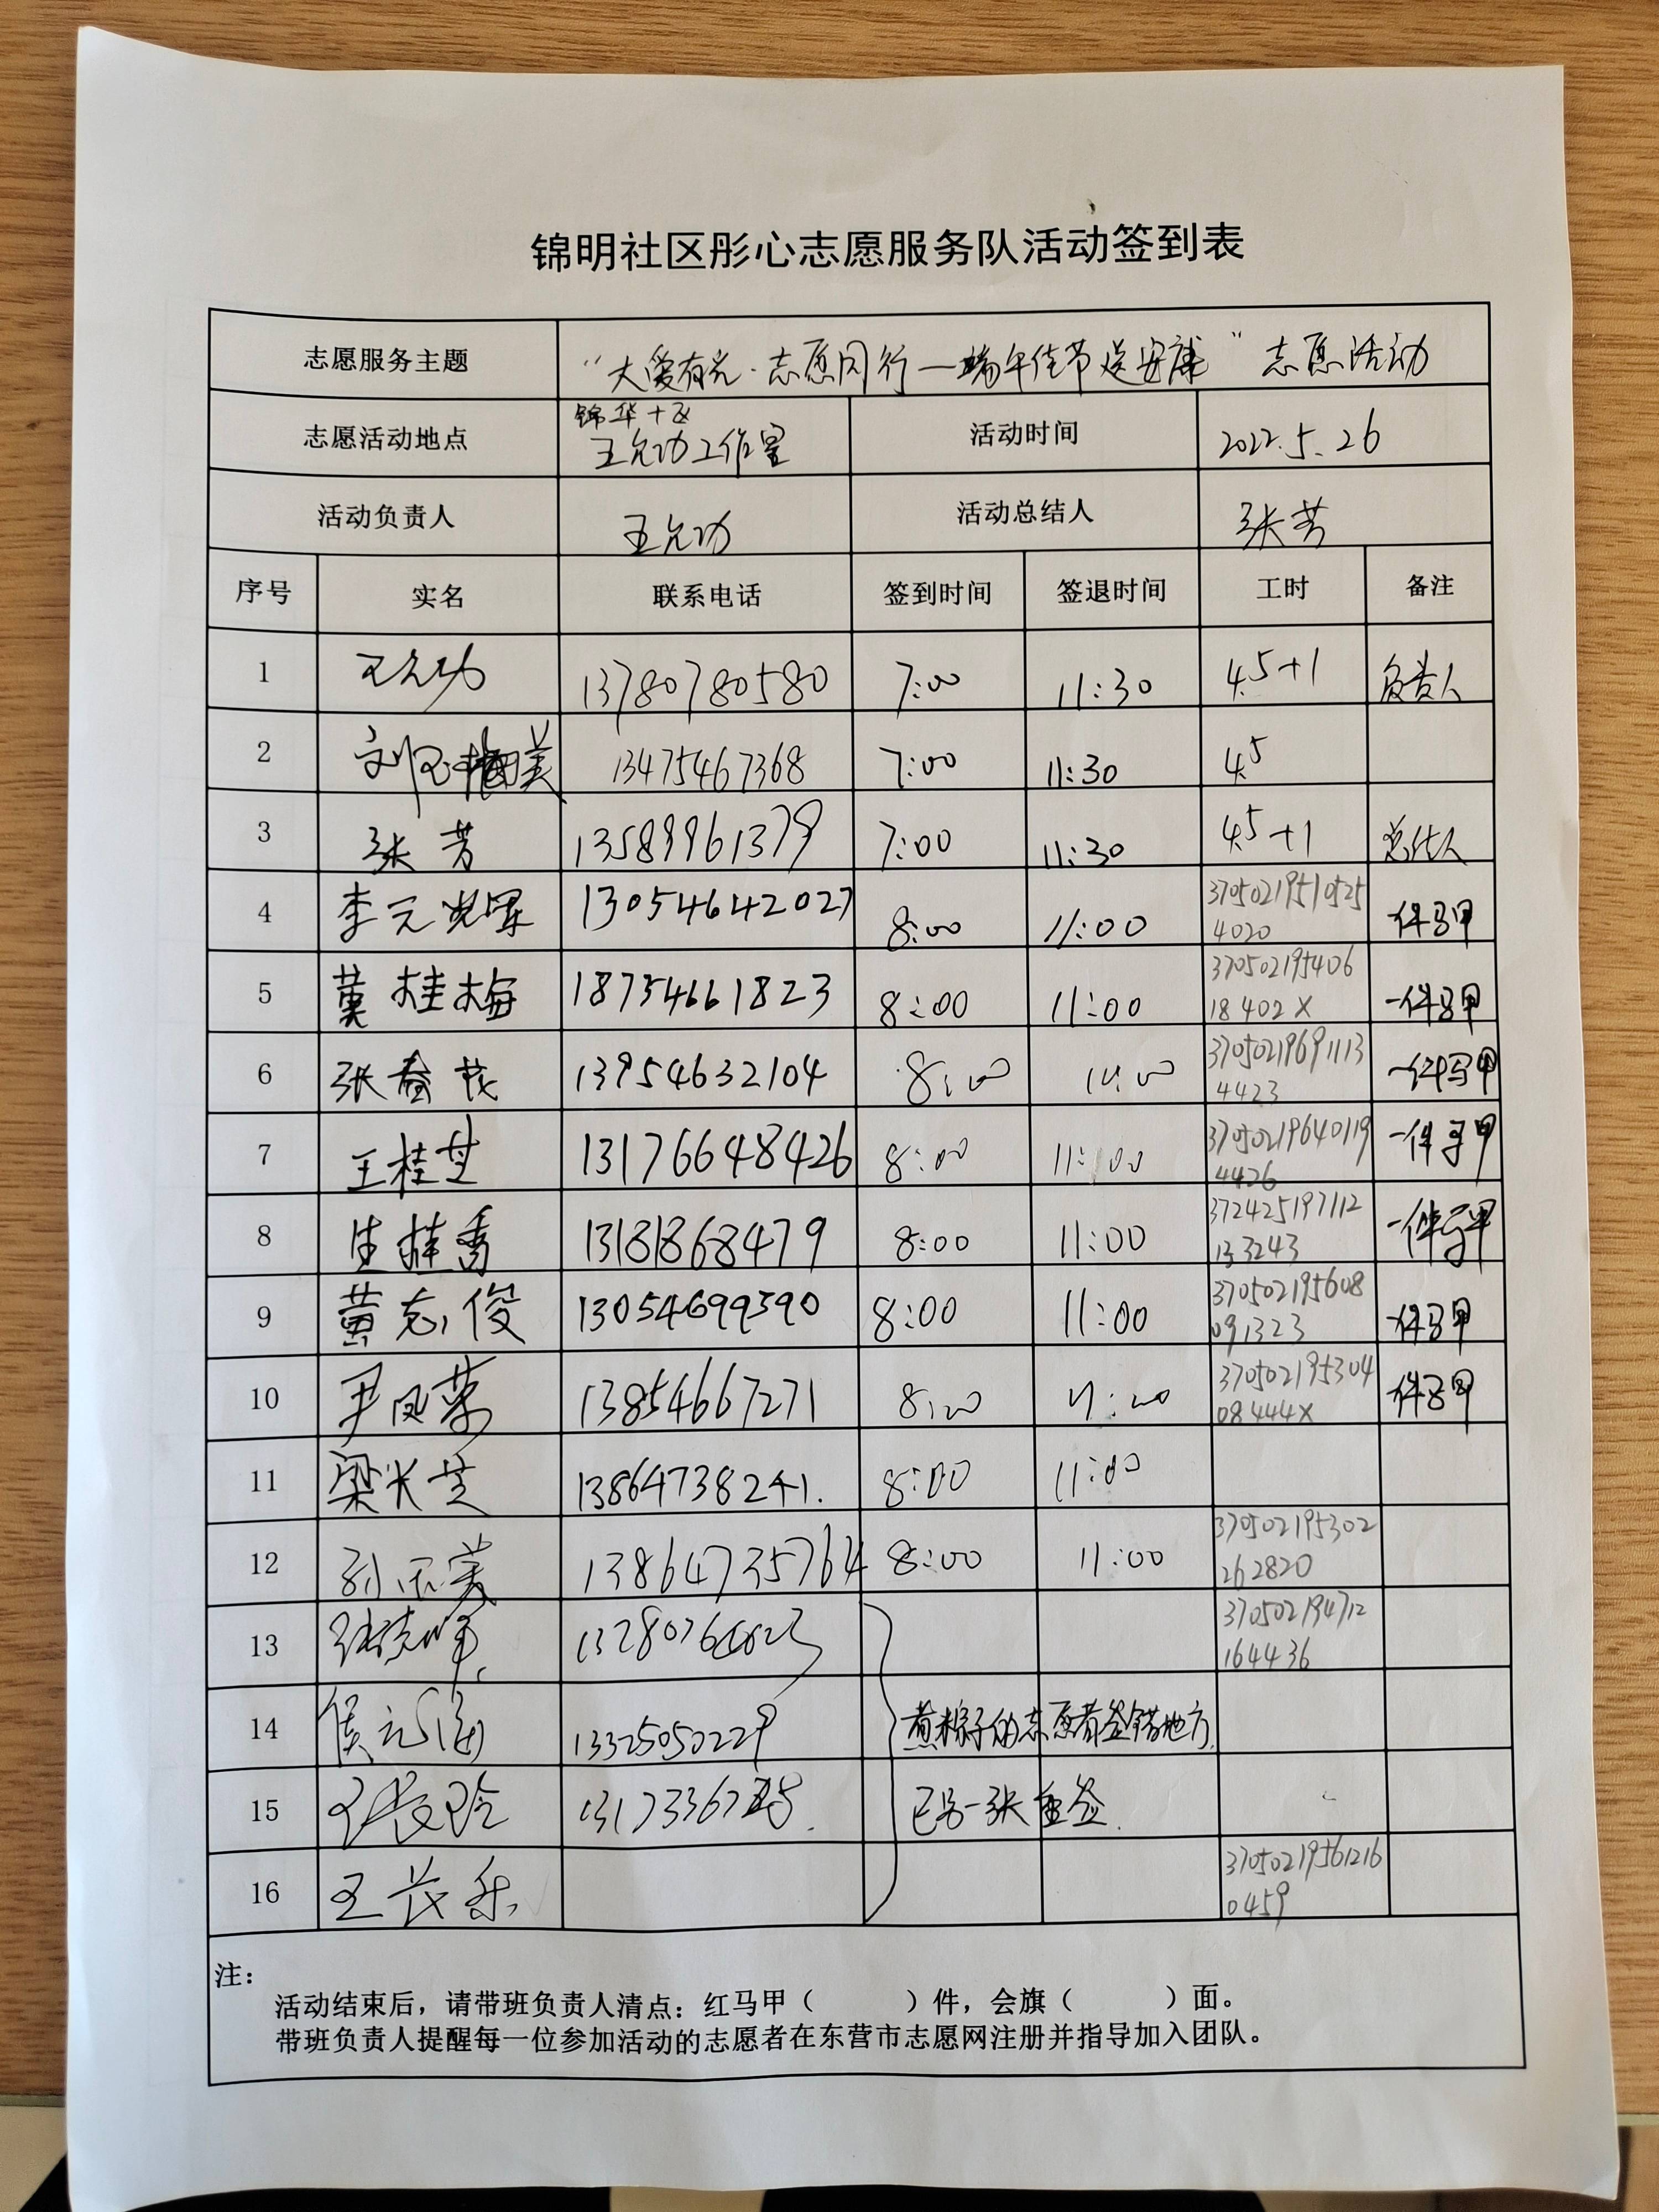 锦明社区彤心志愿服务队活动签到表
志愿服务主题 “大爱有光·志愿同行—端午佳节送安康”志愿活动
志愿活动地点 锦华十区 王允功工作室 活动时间 2022.5.26
活动负责人 王允功 活动总结人 张芳
序号 实名 联系电话 签到时间 签退时间 工时 备注
1 王允功 13780780580 7:00 11:30 4.5+1 负责人
2 13475467368 7:00 11:30 4.5
3 张芳 13589961379 7:00 11:30 4.5+1 总结人
4 李元 13054642027 8:00 11:00 370502195105254020 一件马甲
5 黄桂梅 18754661823 8:00 11:00 37050219540618402X 一件马甲
6 张春 13954632104 8:00 11:00 370502196911134423 一件马甲
7 王桂芝 13176648426 8:00 11:00 370502196401194426 一件马甲
8 生桂香 13181868479 8:00 11:00 372425197112133243 一件马甲
9 黄志俊 13054699590 8:00 11:00 370502195608091323 一件马甲
10 尹凤荣 13854667271 8:00 11:00 37050219530408444X 一件马甲
11 梁米芝 13864738241. 8:00 11:00
12 孙玉美 13864735764 8:00 11:00 370502195302262820
13 370502194712164436
14 侯元海 13325050229 煮粽子的志愿者签错地方,
15 已另一张重签.
16 王长乐 370502195612160459
注：
活动结束后，请带班负责人清点：红马甲（ ）件，会旗（ ）面。
带班负责人提醒每一位参加活动的志愿者在东营市志愿网注册并指导加入团队。